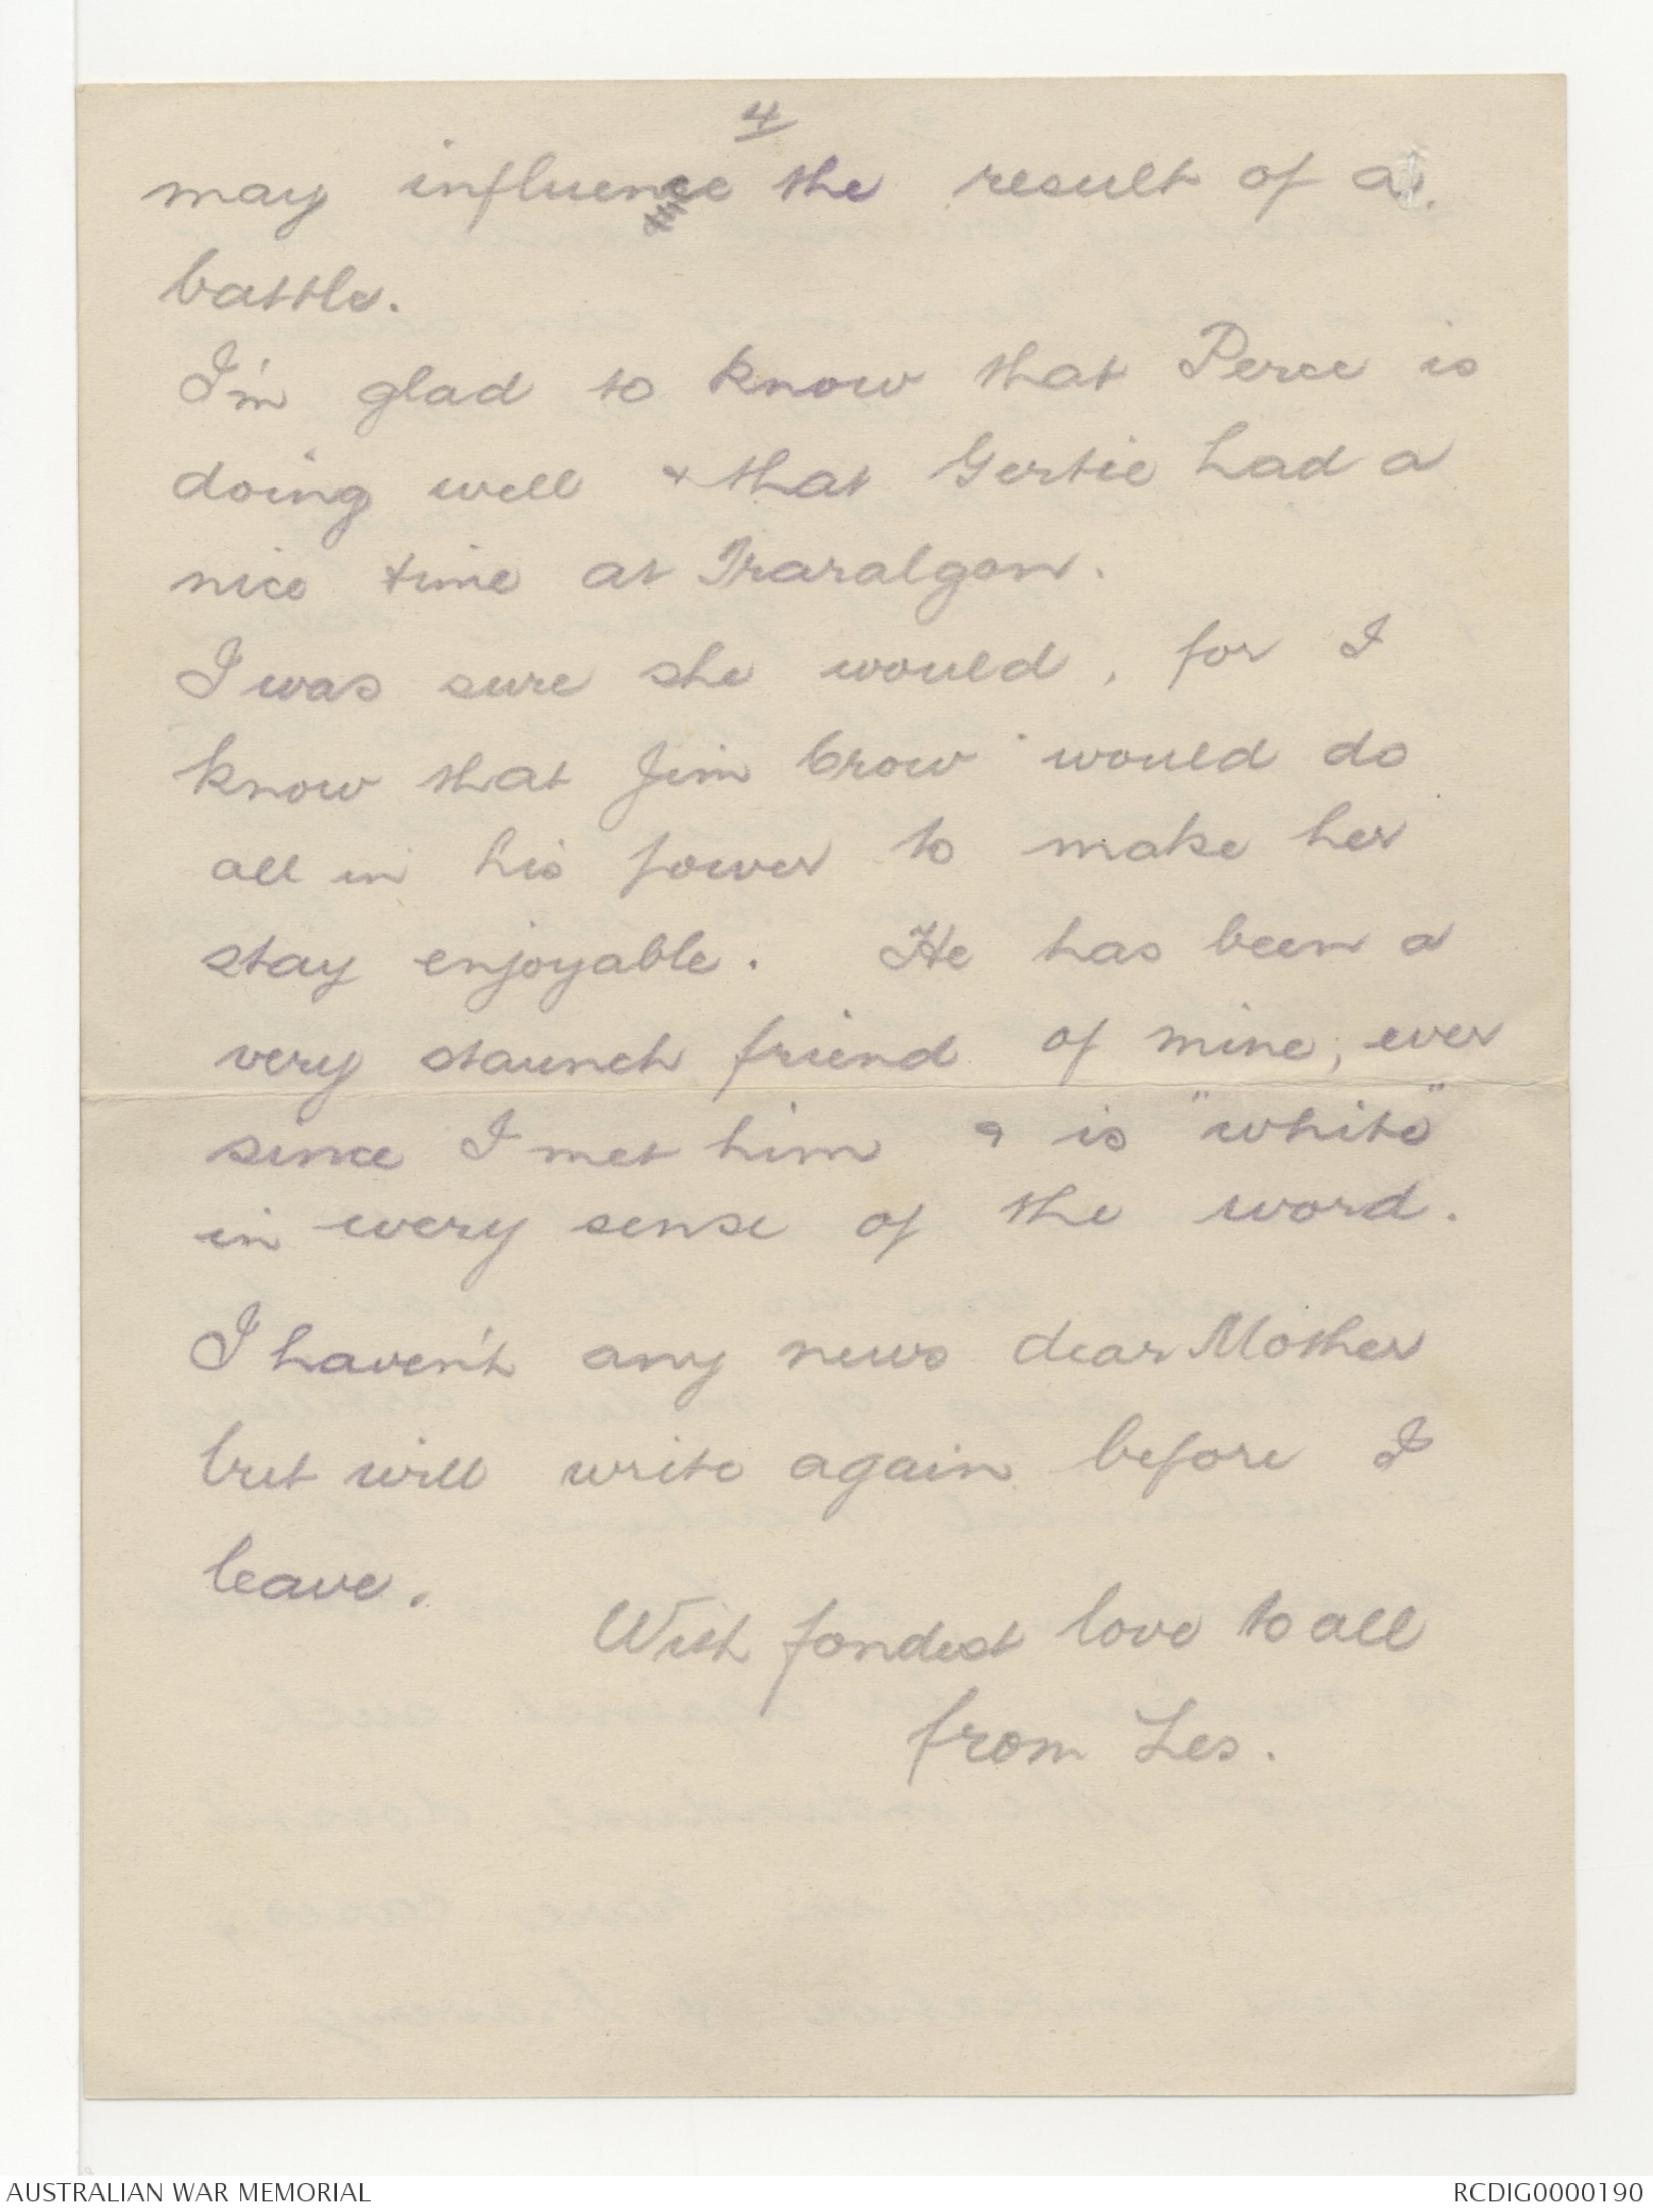 4
may influence the result of a
battle.
I'm glad to know that Perce is
doing well & that Gertie had a
nice time at Traralgon.
I was sure she would, for I
know that Jim Crow would do
all in his power to make her
stay enjoyable. He has been a
very staunch friend of mine, ever
since I met him & is "white"
in every sense of the word.
I haven't any news dear Mother
but will write again before I
leave.
With fondest love to all
from Les.
AUSTRALIAN WAR MEMORIAL
RCDIG0000190